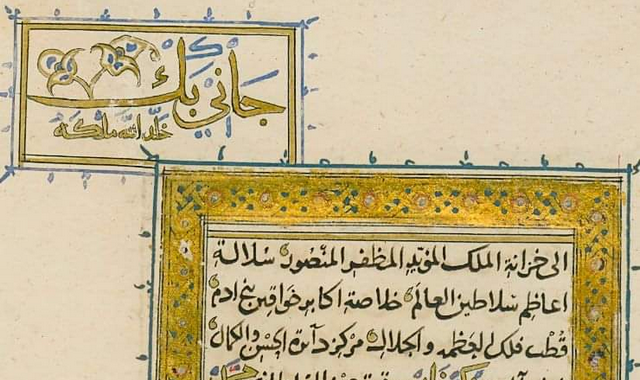 جاني بك
خلد الله ملكه
الى خزانة الملك المؤيد المظفر المنصور سلالة
اعاظم سلاطين العالم خلاصة اكابر خواقين بنى ادم
قطب فلك العظمه والجلال مركز دآئرة الحسن والكمال